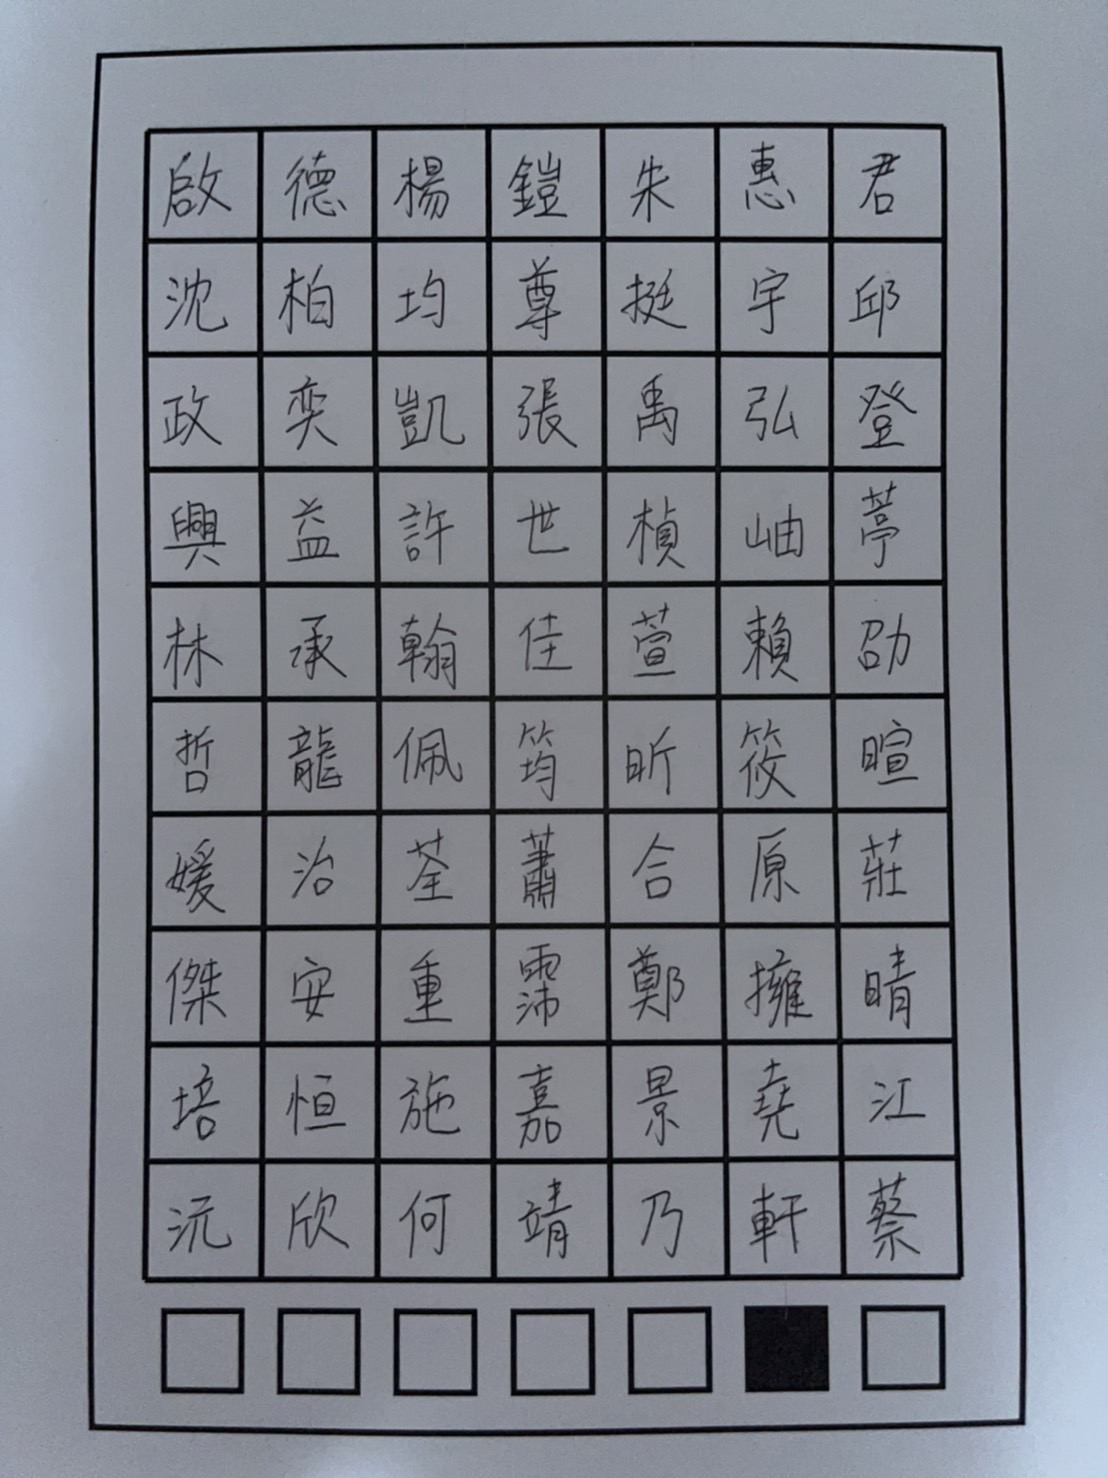 啟德楊鎧朱惠君
沈柏均尊挺宇邱
政奕凱張禹弘登
興益許世楨岫葶
林承翰佳萱賴劭
哲龍佩筠昕筱暄
媛治荃蕭合原莊
傑安重霈鄭擁晴
培恒施嘉景堯江
沅欣何靖乃軒蔡